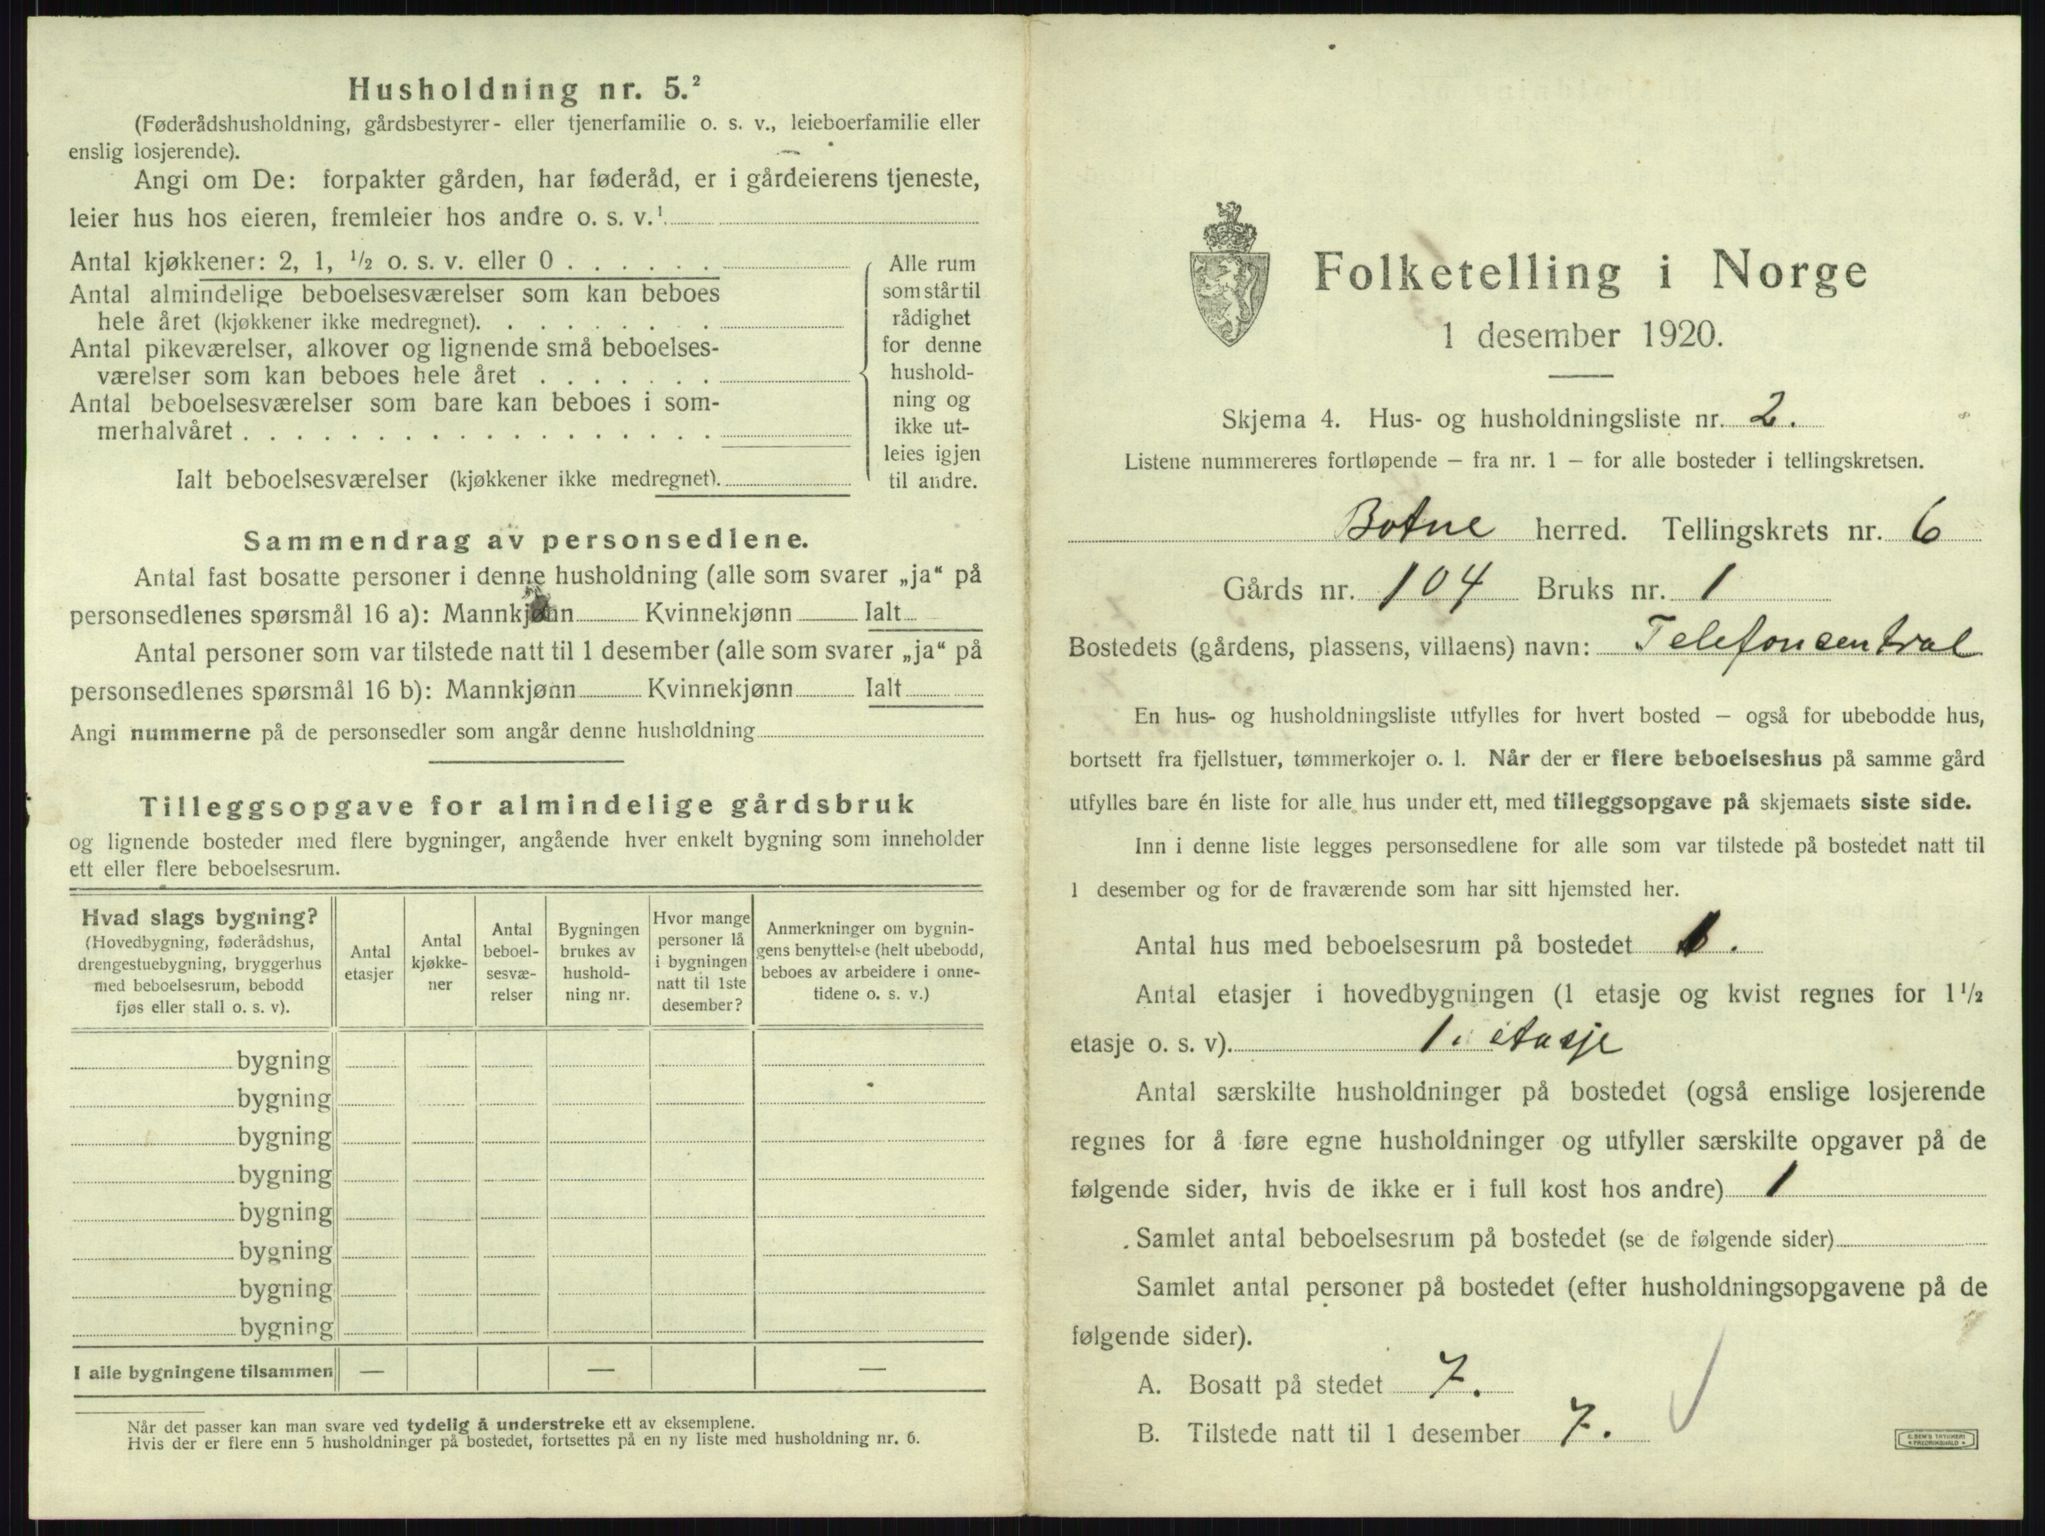 Husholdning nr. 5.²
(Føderådshusholdning, gårdsbestyrer- eller tjenerfamilie o. s. v., leieboerfamilie eller
enslig losjerende).
Angi om De: forpakter gården, har føderåd, er i gårdeierens tjeneste,
leier hus hos eieren, fremleier hos andre o. s. v.¹
Antal kjøkkener: 2, 1, ½ o. s. v. eller 0 . . . . . .
Antal almindelige beboelsesværelser som kan beboes
hele året (kjøkkener ikke medregnet). . . . . . . . .
Antal pikeværelser, alkover og lignende små beboelses-
værelser som kan beboes hele året . . . . . . .
Antal beboelsesværelser som bare kan beboes i som-
merhalvåret . . . . . . . . . . . . . . . . . .
Ialt beboelsesværelser (kjøkkener ikke medregnet).
Alle rum
som står til
rådighet
for denne
hushold-
ning og
ikke ut-
leies igjen
til andre.
Sammendrag av personsedlene.
Antal fast bosatte personer i denne husholdning (alle som svarer „ja“ på
personsedlenes spørsmål 16 a): Mannkjønn Kvinnekjønn Ialt
Antal personer som var tilstede natt til 1 desember (alle som svarer „ja“ på
personsedlenes spørsmål 16 b): Mannkjønn Kvinnekjønn Ialt
Angi nummerne på de personsedler som angår denne husholdning
Tilleggsopgave for almindelige gårdsbruk
og lignende bosteder med flere bygninger, angående hver enkelt bygning som inneholder
ett eller flere beboelsesrum.
Hvad slags bygning?
(Hovedbygning, føderådshus,
drengestuebygning, bryggerhus
med beboelsesrum, bebodd
fjøs eller stall o. s. v).
Antal
etasjer
Antal
kjøkke-
ner
Antal
beboel-
sesvæ-
relser
Bygningen
brukes av
hushold-
ning nr.
Hvor mange
personer lå
i bygningen
natt til 1ste
desember?
Anmerkninger om bygnin-
gens benyttelse (helt ubebodd,
beboes av arbeidere i onne-
tidene o. s. v.)
bygning
bygning
bygning
bygning
bygning
bygning
bygning
bygning
I alle bygningene tilsammen — — —
Når det passer kan man svare ved tydelig å understreke ett av eksemplene.
Hvis der er flere enn 5 husholdninger på bostedet, fortsettes på en ny liste med husholdning nr. 6.
Folketelling i Norge
1 desember 1920.
Skjema 4. Hus- og husholdningsliste nr. 2.
Listene nummereres fortløpende – fra nr. 1 – for alle bosteder i tellingskretsen.
Botne herred. Tellingskrets nr. 6
Gårds nr. 104 Bruks nr. 1
Bostedets (gårdens, plassens, villaens) navn: Telefoncentral
En hus- og husholdningsliste utfylles for hvert bosted – også for ubebodde hus,
bortsett fra fjellstuer, tømmerkojer o. l. Når der er flere beboelseshus på samme gård
utfylles bare én liste for alle hus under ett, med tilleggsopgave på skjemaets siste side.
Inn i denne liste legges personsedlene for alle som var tilstede på bostedet natt til
1 desember og for de fraværende som har sitt hjemsted her.
Antal hus med beboelsesrum på bostedet 1.
Antal etasjer i hovedbygningen (1 etasje og kvist regnes for 1½
etasje o. s. v). 1. etasje
Antal særskilte husholdninger på bostedet (også enslige losjerende
regnes for å føre egne husholdninger og utfyller særskilte opgaver på de
følgende sider, hvis de ikke er i full kost hos andre) 1
Samlet antal beboelsesrum på bostedet (se de følgende sider)
Samlet antal personer på bostedet (efter husholdningsopgavene på de
følgende sider).
A. Bosatt på stedet 7.
B. Tilstede natt til 1 desember 7.